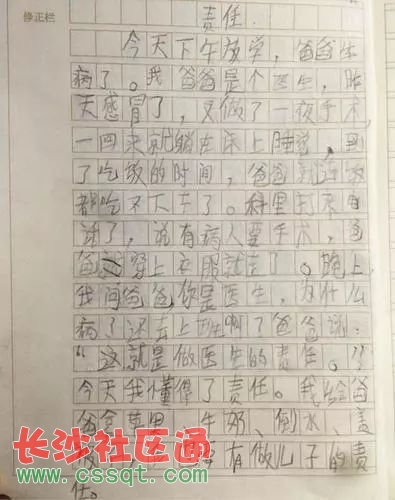 修正栏
责任.
今天下午放学,爸爸生
病了。我爸爸是个医生,昨
天感冒了,又做了一夜手术,
一回来就躺在床上睡着,到
了吃饭的时间,爸爸就连饭
都吃不下去了。科里打来电
话了,说有病人要手术,爸
爸穿上衣服就走了。晚上,
我问爸爸,你是医生,为什么
病了还去上班啊?爸爸说:
“这就是做医生的责任。”
今天我懂得了责任。我给爸
爸拿苹果、牛奶、倒水、盖
有做儿子的责
任。
长沙社区通
www.cssqt.com